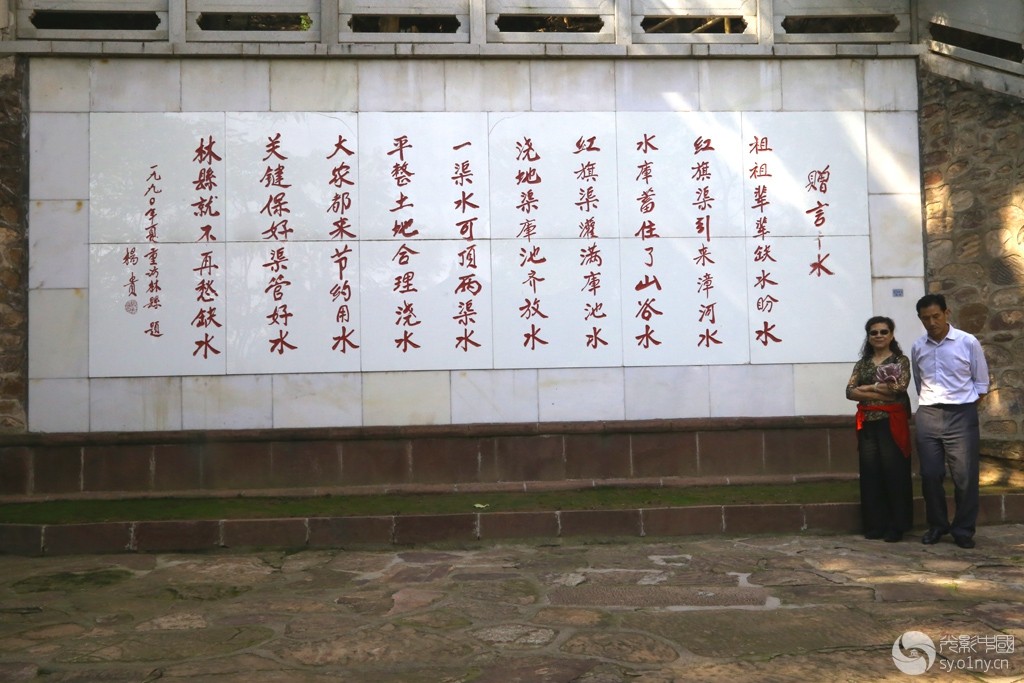 赠言:水
祖祖辈辈缺水盼水
红旗渠引来漳河水
水库蓄住了山谷水
红旗渠灌满库池水
浇地渠库池齐放水
一渠水可顶两渠水
平整土地合理浇水
大家都来节约用水
关键保好渠管好水
林縣就不再愁缺水
一九九〇年夏重访林縣 题
杨贵
光影中國
sy.o1ny.cn